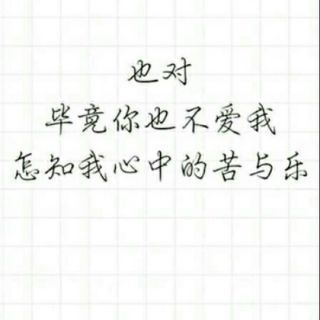 也对
毕竟你也不爱我
怎知我心中的苦与乐